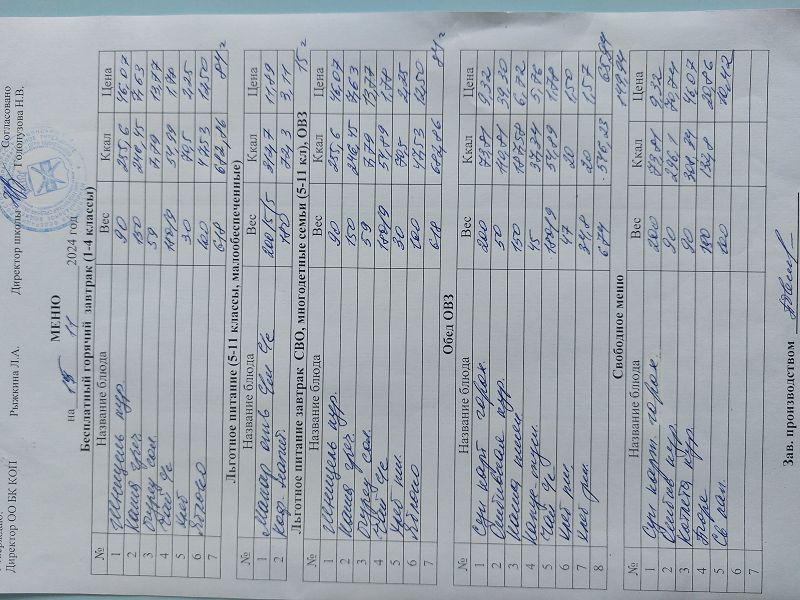 Согласовано
Директор ОО БК КОП Рыжкина Л.А. Директор школы Голопузова Н.В.
МЕНЮ
на 15 11 2024 год
Бесплатный горячий завтрак (1-4 классы)
№ Название блюда Вес Ккал Цена
1 Шницель кур. 90 255,6 46,07
2 Каша греч. 150 246,45 7,63
3 Огурец сол. 59 7,79 13,77
4 Чай с/с 180/9 54,89 1,78
5 Хлеб 30 70,5 2,25
6 Яблоко 100 47,53 12,50
7 618 682,86 84 г
Льготное питание (5-11 классы, малообеспеченные)
№ Название блюда Вес Ккал Цена
1 200/5/5 314,7 11,89
2 180 72,3 3,11
15 г
Льготное питание завтрак СВО, многодетные семьи (5-11 кл), ОВЗ
№ Название блюда Вес Ккал Цена
1 Шницель кур. 90 255,6 46,07
2 Каша греч. 150 246,45 7,63
3 Огурец сол. 59 7,79 13,77
4 Чай с/с 180/9 54,89 1,78
5 Хлеб пш. 30 70,5 2,25
6 Яблоко 100 47,53 12,50
7 618 682,86 84 г
Обед ОВЗ
№ Название блюда Вес Ккал Цена
1 Суп карт горох. 200 73,81 9,32
2 кур. 50 110,81 39,20
3 Каша 150 187,58 6,72
4 45 37,34 5,76
5 Чай с/с 180/9 54,89 1,78
6 Хлеб пш. 47 20 1,50
7 Хлеб рж. 34,8 20 1,57
8 674 546,23 65,84
149,84
Свободное меню
№ Название блюда Вес Ккал Цена
1 Суп карт. горох. 200 73,81 9,32
2 кур. 90 236,1 70,74
3 Котлета кур. 90 308,34 46,07
4 Пюре 180 132,8 20,86
5 100 10,42
6
7
Зав. производством